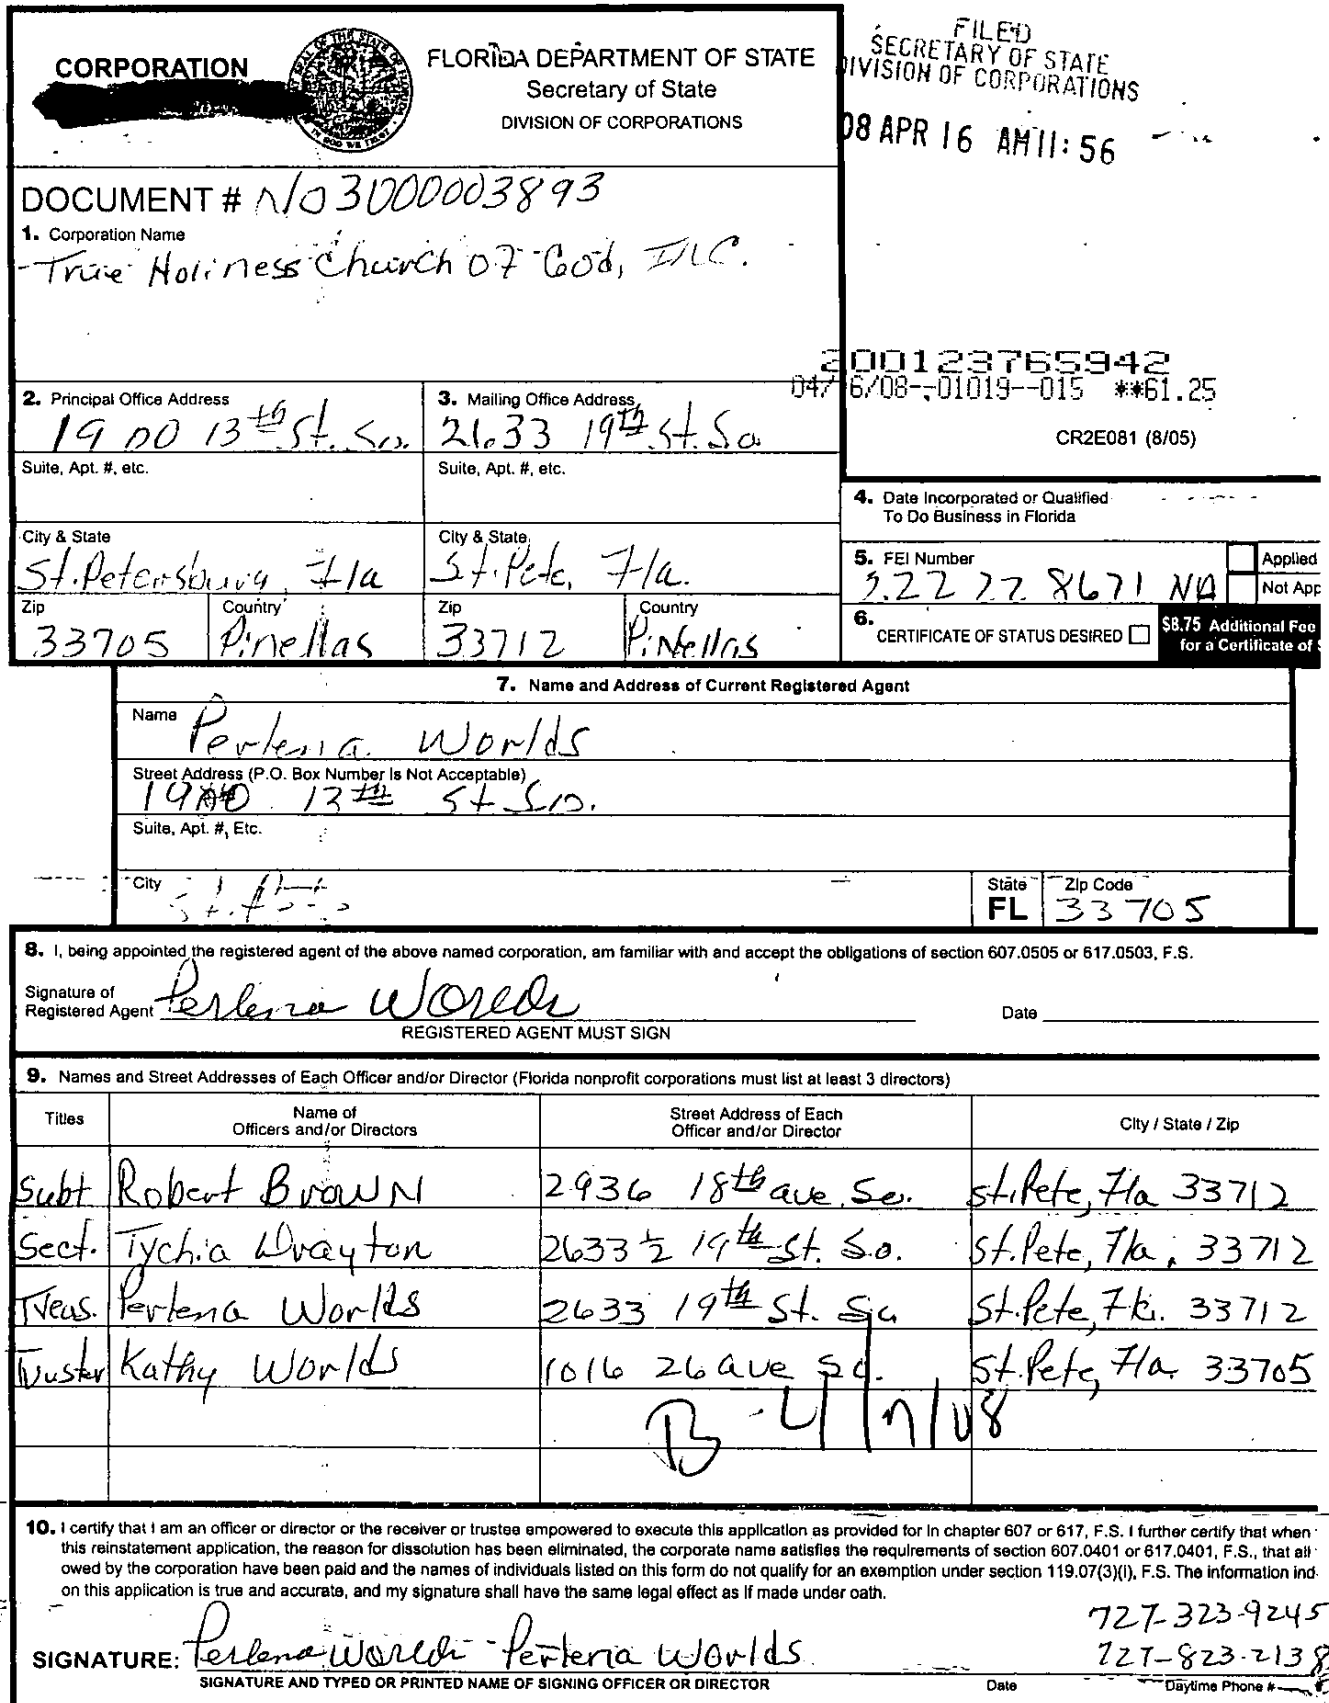 CORPORATION
FLORIDA DEPARTMENT OF STATE
Secretary of State
DIVISION OF CORPORATIONS
FILED
SECRETARY OF STATE
DIVISION OF CORPORATIONS
08 APR 16 AM 11:56
DOCUMENT # N03000003893
1. Corporation Name
True Holiness Church of God, INC.
200123765942
04/16/08--01019--015 **61.25
CR2E081 (8/05)
2. Principal Office Address
1900 13th St. So.
3. Mailing Office Address
2633 19th St. So
Suite, Apt. #, etc.
Suite, Apt. #, etc.
City & State
St. Petersburg, Fla
City & State
St. Pete, Fla.
Zip
33705
Country
Pinellas
Zip
33712
Country
Pinellas
4. Date Incorporated or Qualified
To Do Business in Florida
5. FEI Number
8671 NA
Applied
Not App
6. CERTIFICATE OF STATUS DESIRED
$8.75 Additional Fee
for a Certificate of S
7. Name and Address of Current Registered Agent
Name
Perlena Worlds
Street Address (P.O. Box Number Is Not Acceptable)
1900 13th St So.
Suite, Apt. #, Etc.
City
St. Pete
State
FL
Zip Code
33705
8. I, being appointed the registered agent of the above named corporation, am familiar with and accept the obligations of section 607.0505 or 617.0503, F.S.
Signature of
Registered Agent Perlena Worlds
REGISTERED AGENT MUST SIGN
Date
9. Names and Street Addresses of Each Officer and/or Director (Florida nonprofit corporations must list at least 3 directors)
Titles
Name of
Officers and/or Directors
Street Address of Each
Officer and/or Director
City / State / Zip
Subt Robert Brown 2936 18th ave. So. St. Pete, Fla 33712
Sect. Tychia Drayton 2633 1/2 19th St. So. St. Pete, Fla, 33712
Treas. Perlena Worlds 2633 19th St. So St. Pete, Fla. 33712
Truster Kathy Worlds 1016 26 ave So. St. Pete, Fla. 33705
B 4/17/08
10. I certify that I am an officer or director or the receiver or trustee empowered to execute this application as provided for in chapter 607 or 617, F.S. I further certify that when
this reinstatement application, the reason for dissolution has been eliminated, the corporate name satisfies the requirements of section 607.0401 or 617.0401, F.S., that all
owed by the corporation have been paid and the names of individuals listed on this form do not qualify for an exemption under section 119.07(3)(i), F.S. The information ind
on this application is true and accurate, and my signature shall have the same legal effect as if made under oath.
727-323-9245
727-823-2138
SIGNATURE: Perlena Worlds Perlena Worlds
SIGNATURE AND TYPED OR PRINTED NAME OF SIGNING OFFICER OR DIRECTOR
Date
Daytime Phone #